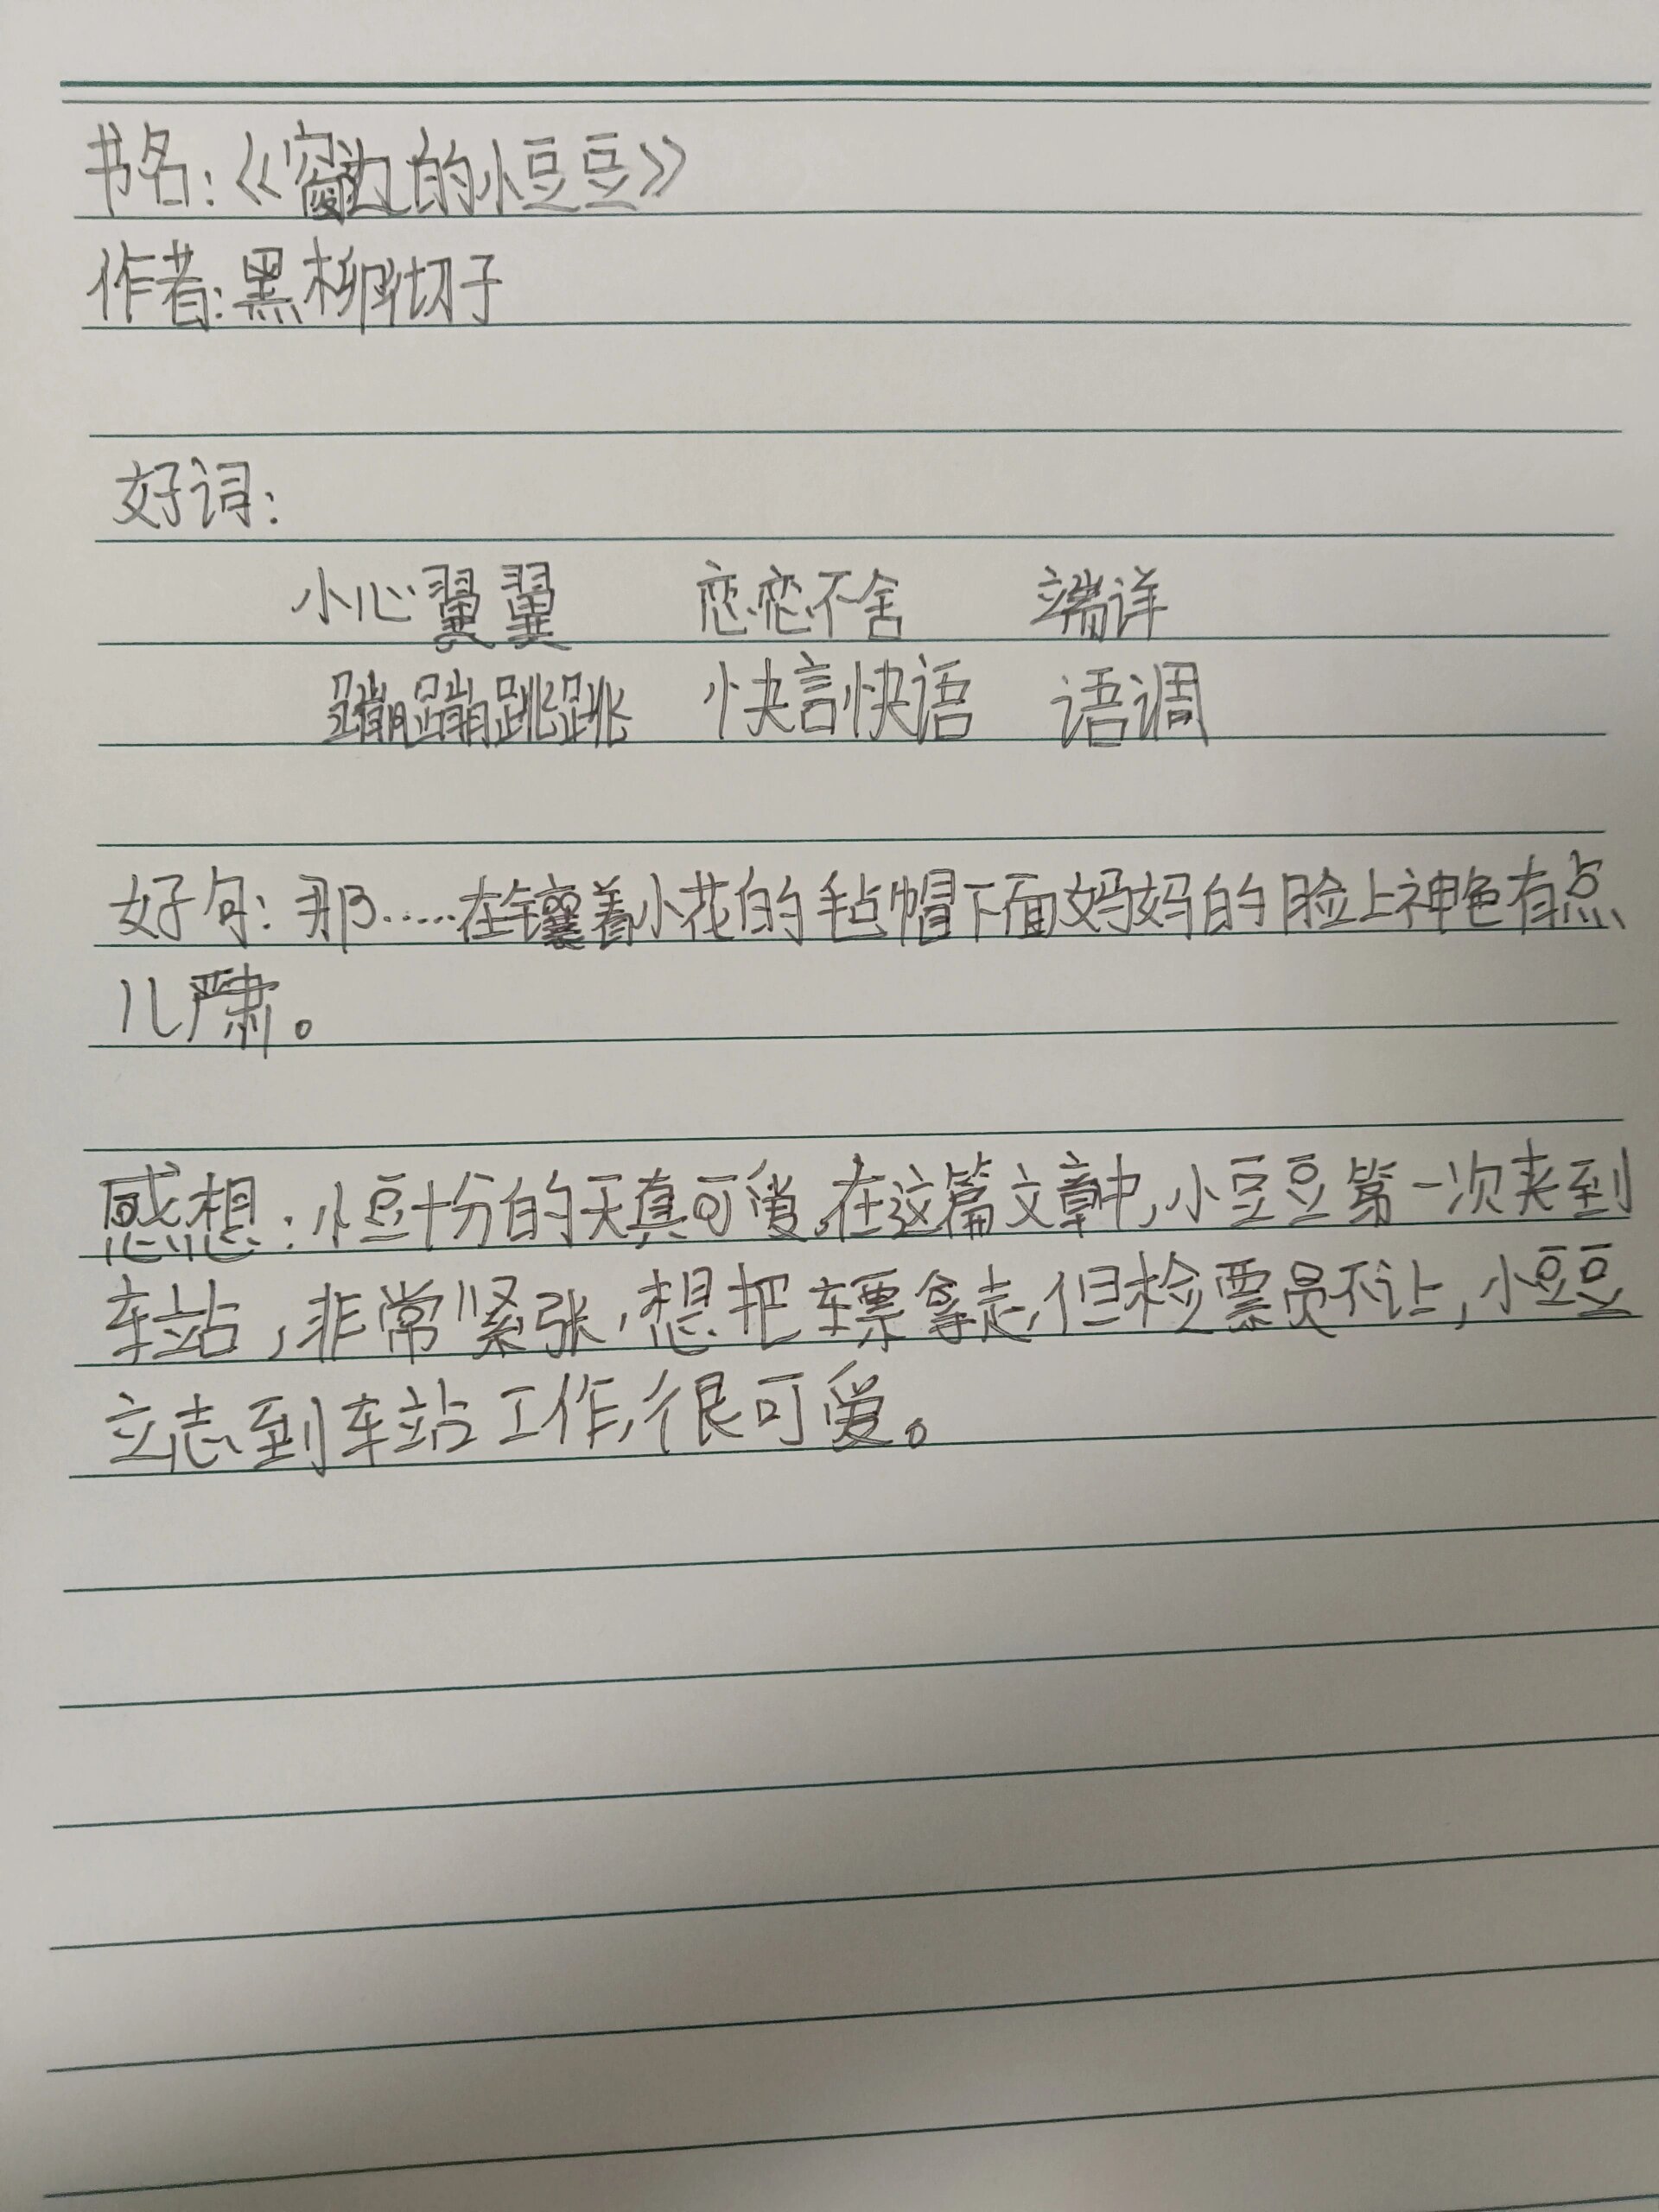 书名：《窗边的小豆豆》
作者：黑柳彻子
好词：
小心翼翼 恋恋不舍 端详
蹦蹦跳跳 快言快语 语调
好句：那……在镶着小花的毡帽下面妈妈的脸上神色有点
儿严肃。
感想：小豆十分的天真可爱，在这篇文章中，小豆豆第一次来到
车站，非常紧张，想把车票拿走，但检票员不让，小豆豆
立志到车站工作，很可爱。